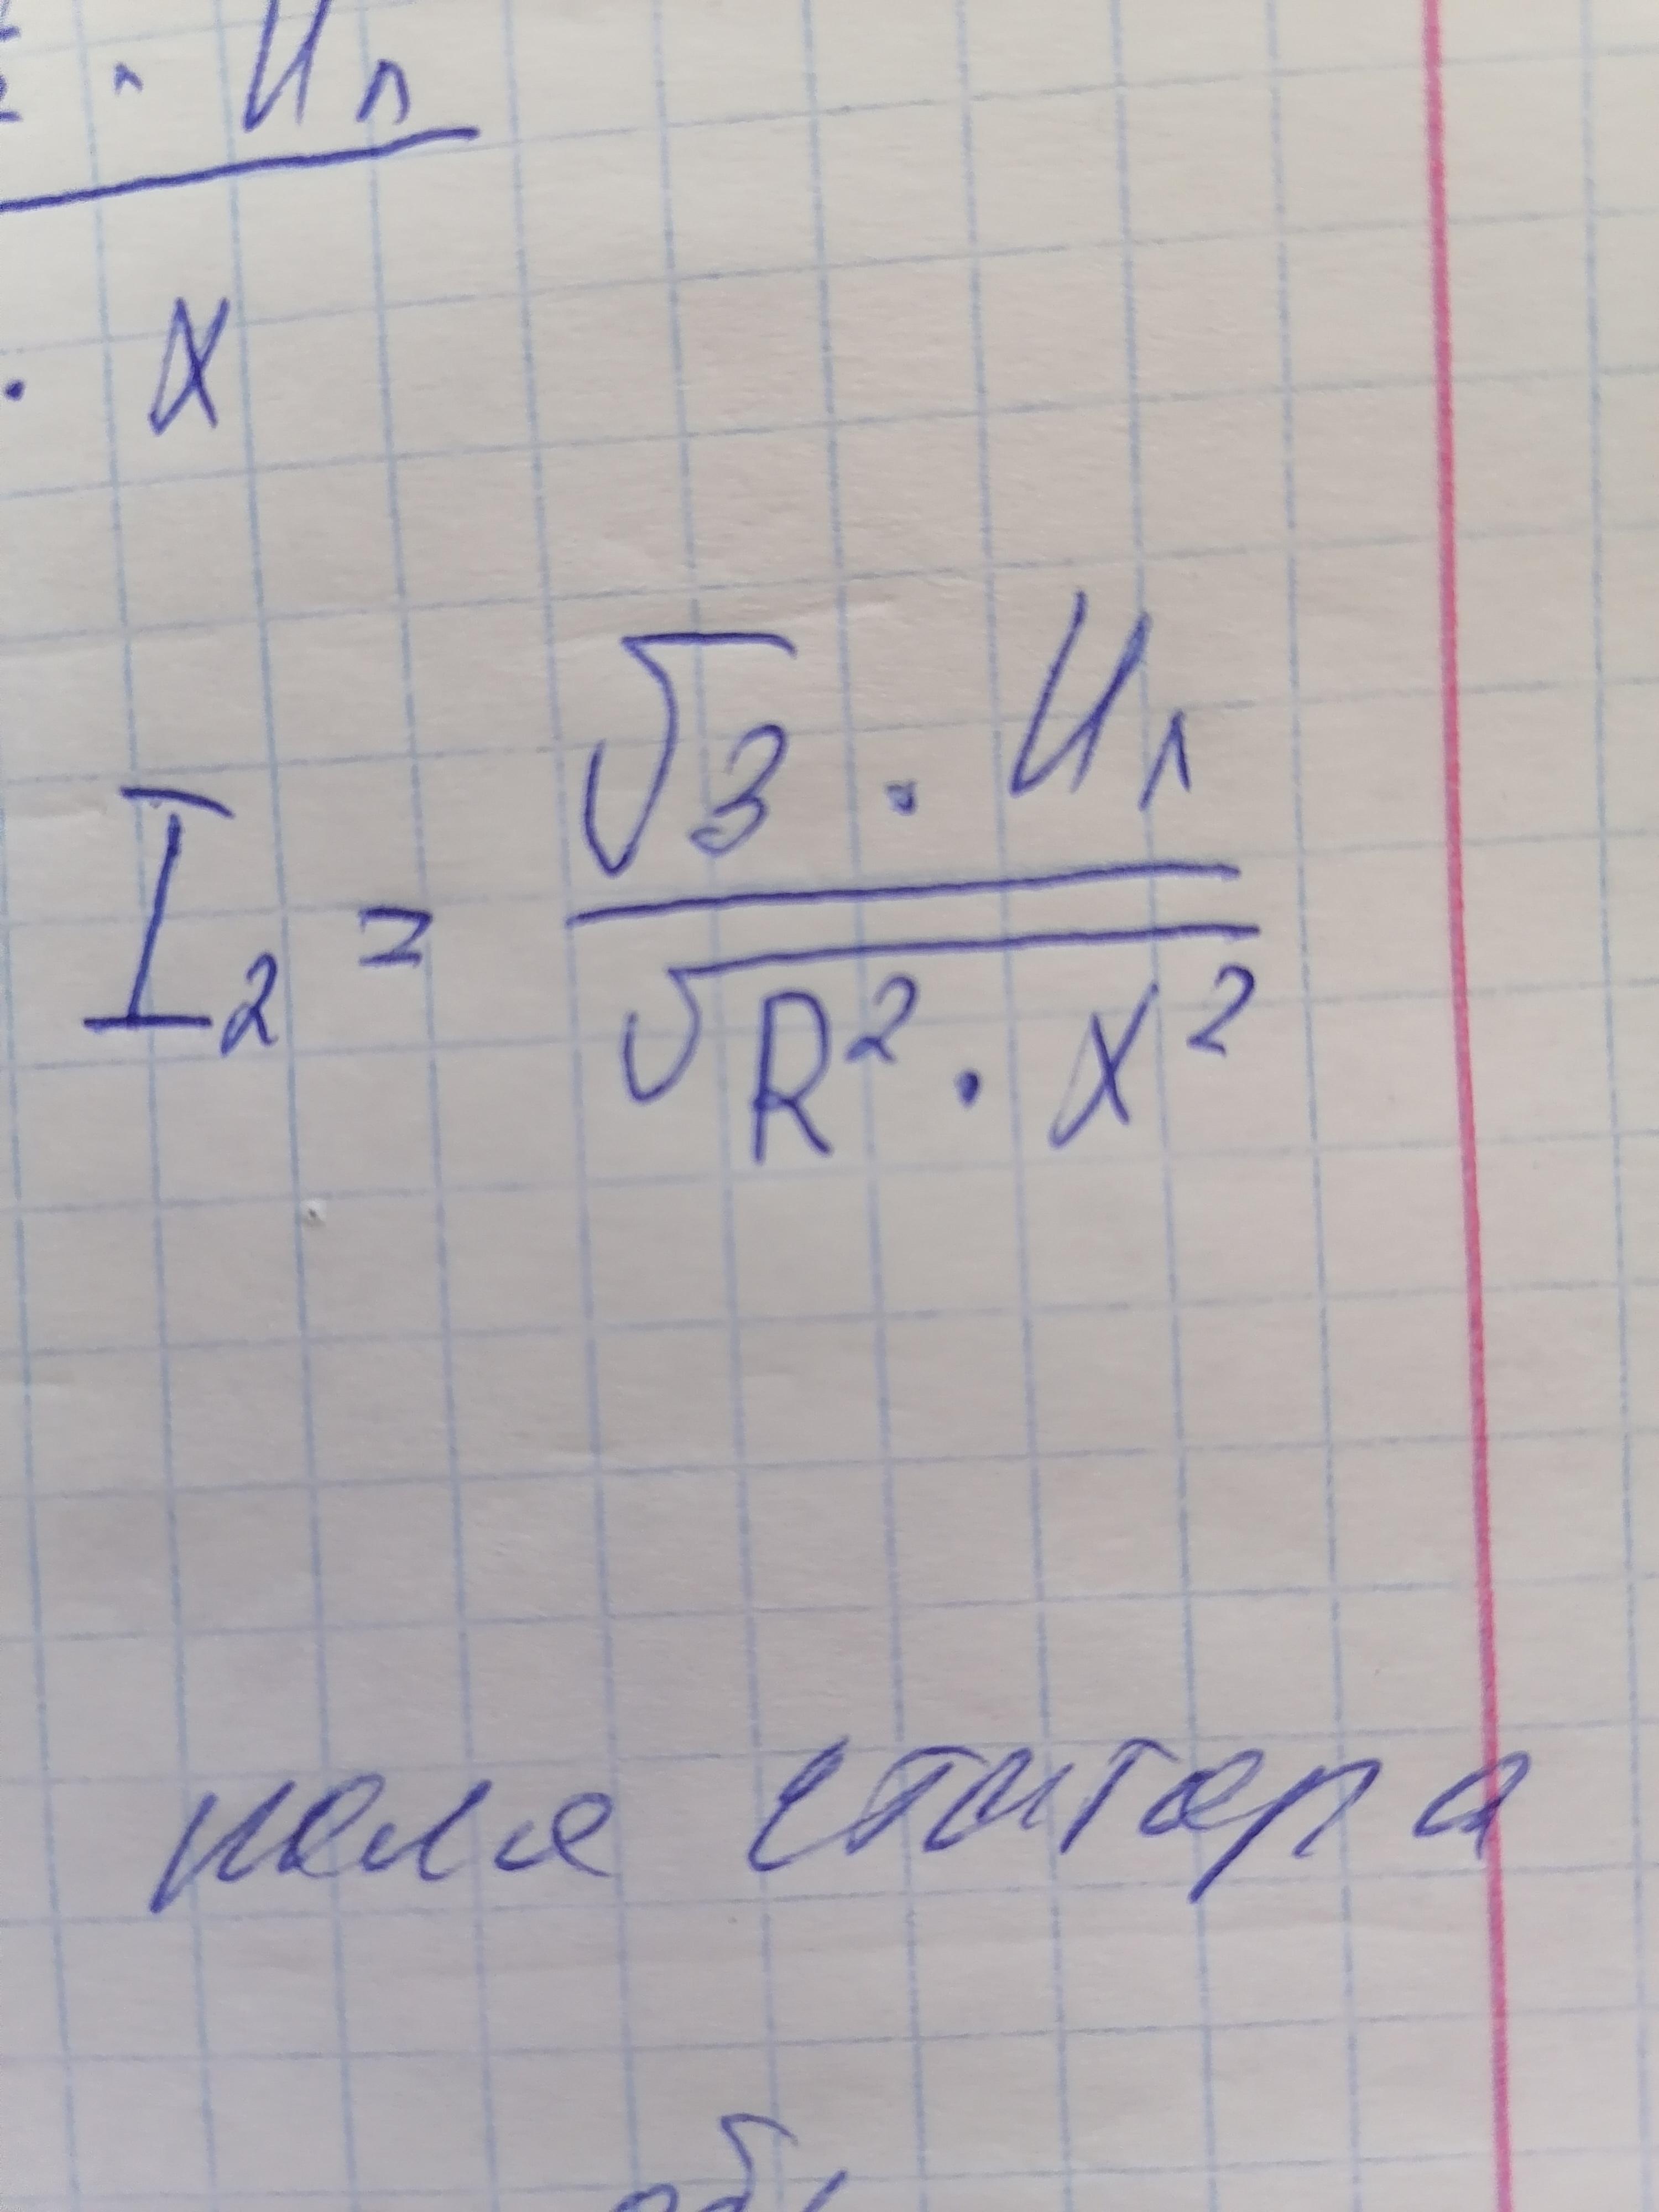 · Uл
· X
I₂ = √3 · Uл / √R² · X²
поле статора
об